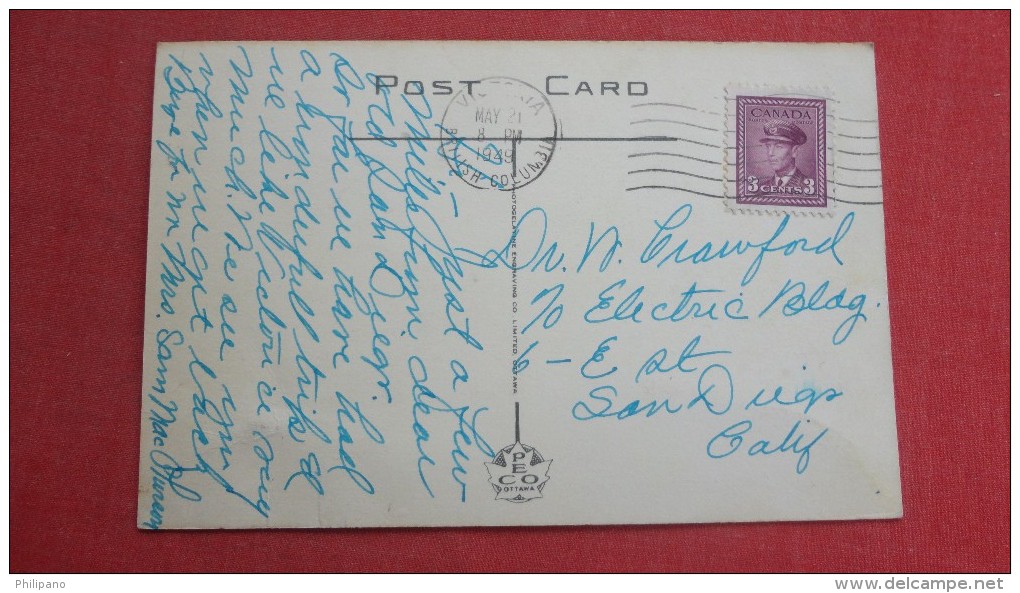 POST CARD
VICTORIA
MAY 21
8 PM
1949
BRITISH COLUMBIA
CANADA
3 CENTS 3
Just a few
miles from dear
old San Diego
So far we have had
a wonderful trip &
we like Victoria very
much. Be see you
when we get back
Love from Mr Mrs. Sam
Dr. W. Crawford
c/o Electric Bldg.
6 - E st
San Diego
Calif
PHOTOGELATINE ENGRAVING CO. LIMITED, OTTAWA
PECO
OTTAWA
Philipano
www.delcampe.net